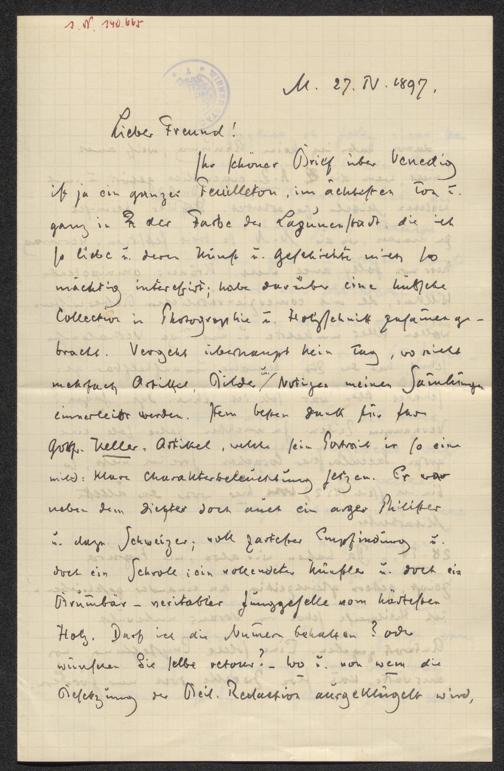 J. N. 140.665
M. 27. IV. 1897.
Lieber Freund!
Ihr schöner Brief über Venedig
ist ja ein ganzes Feuilleton, im ächtesten Ton u.
ganz in der Farbe der Lagunenstadt, die ich
so liebe u. deren Kunst u. Geschichte mich so
mächtig interessirt; habe darüber eine hübsche
Collection in Photographie u. Holzschnitt zusammenge-
bracht. Vergeht überhaupt kein Tag, wo nicht
mehrfach Artikel, Bilder u. Notizen meinen Sammlungen
einverleibt werden. Nem besten Dank für Ihre
Gottfr. Keller-Artikel, welche sein Portrait in so eine
mild: klare Charakterbeleuchtung setzen. Er war
neben dem Dichter doch auch ein arger Philister
u. dazu Schweizer; voll zartester Empfindung u.
doch ein Schroll; ein vollendeter Künstler u. doch ein
Brumbär - veritabler Junggeselle vom härtesten
Holz. Darf ich die Numern behalten? oder
wünschen Sie selbe retour? - Wo u. von wem die
Besetzung der Beil. Redaction ausgeklügelt wird,